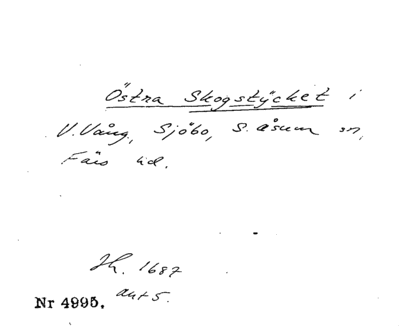 Östra Skogstycket i
V. Vång, Sjöbo, S. åsum sn,
Färs hd.
Jh. 1687
akt 5.
Nr 4995.